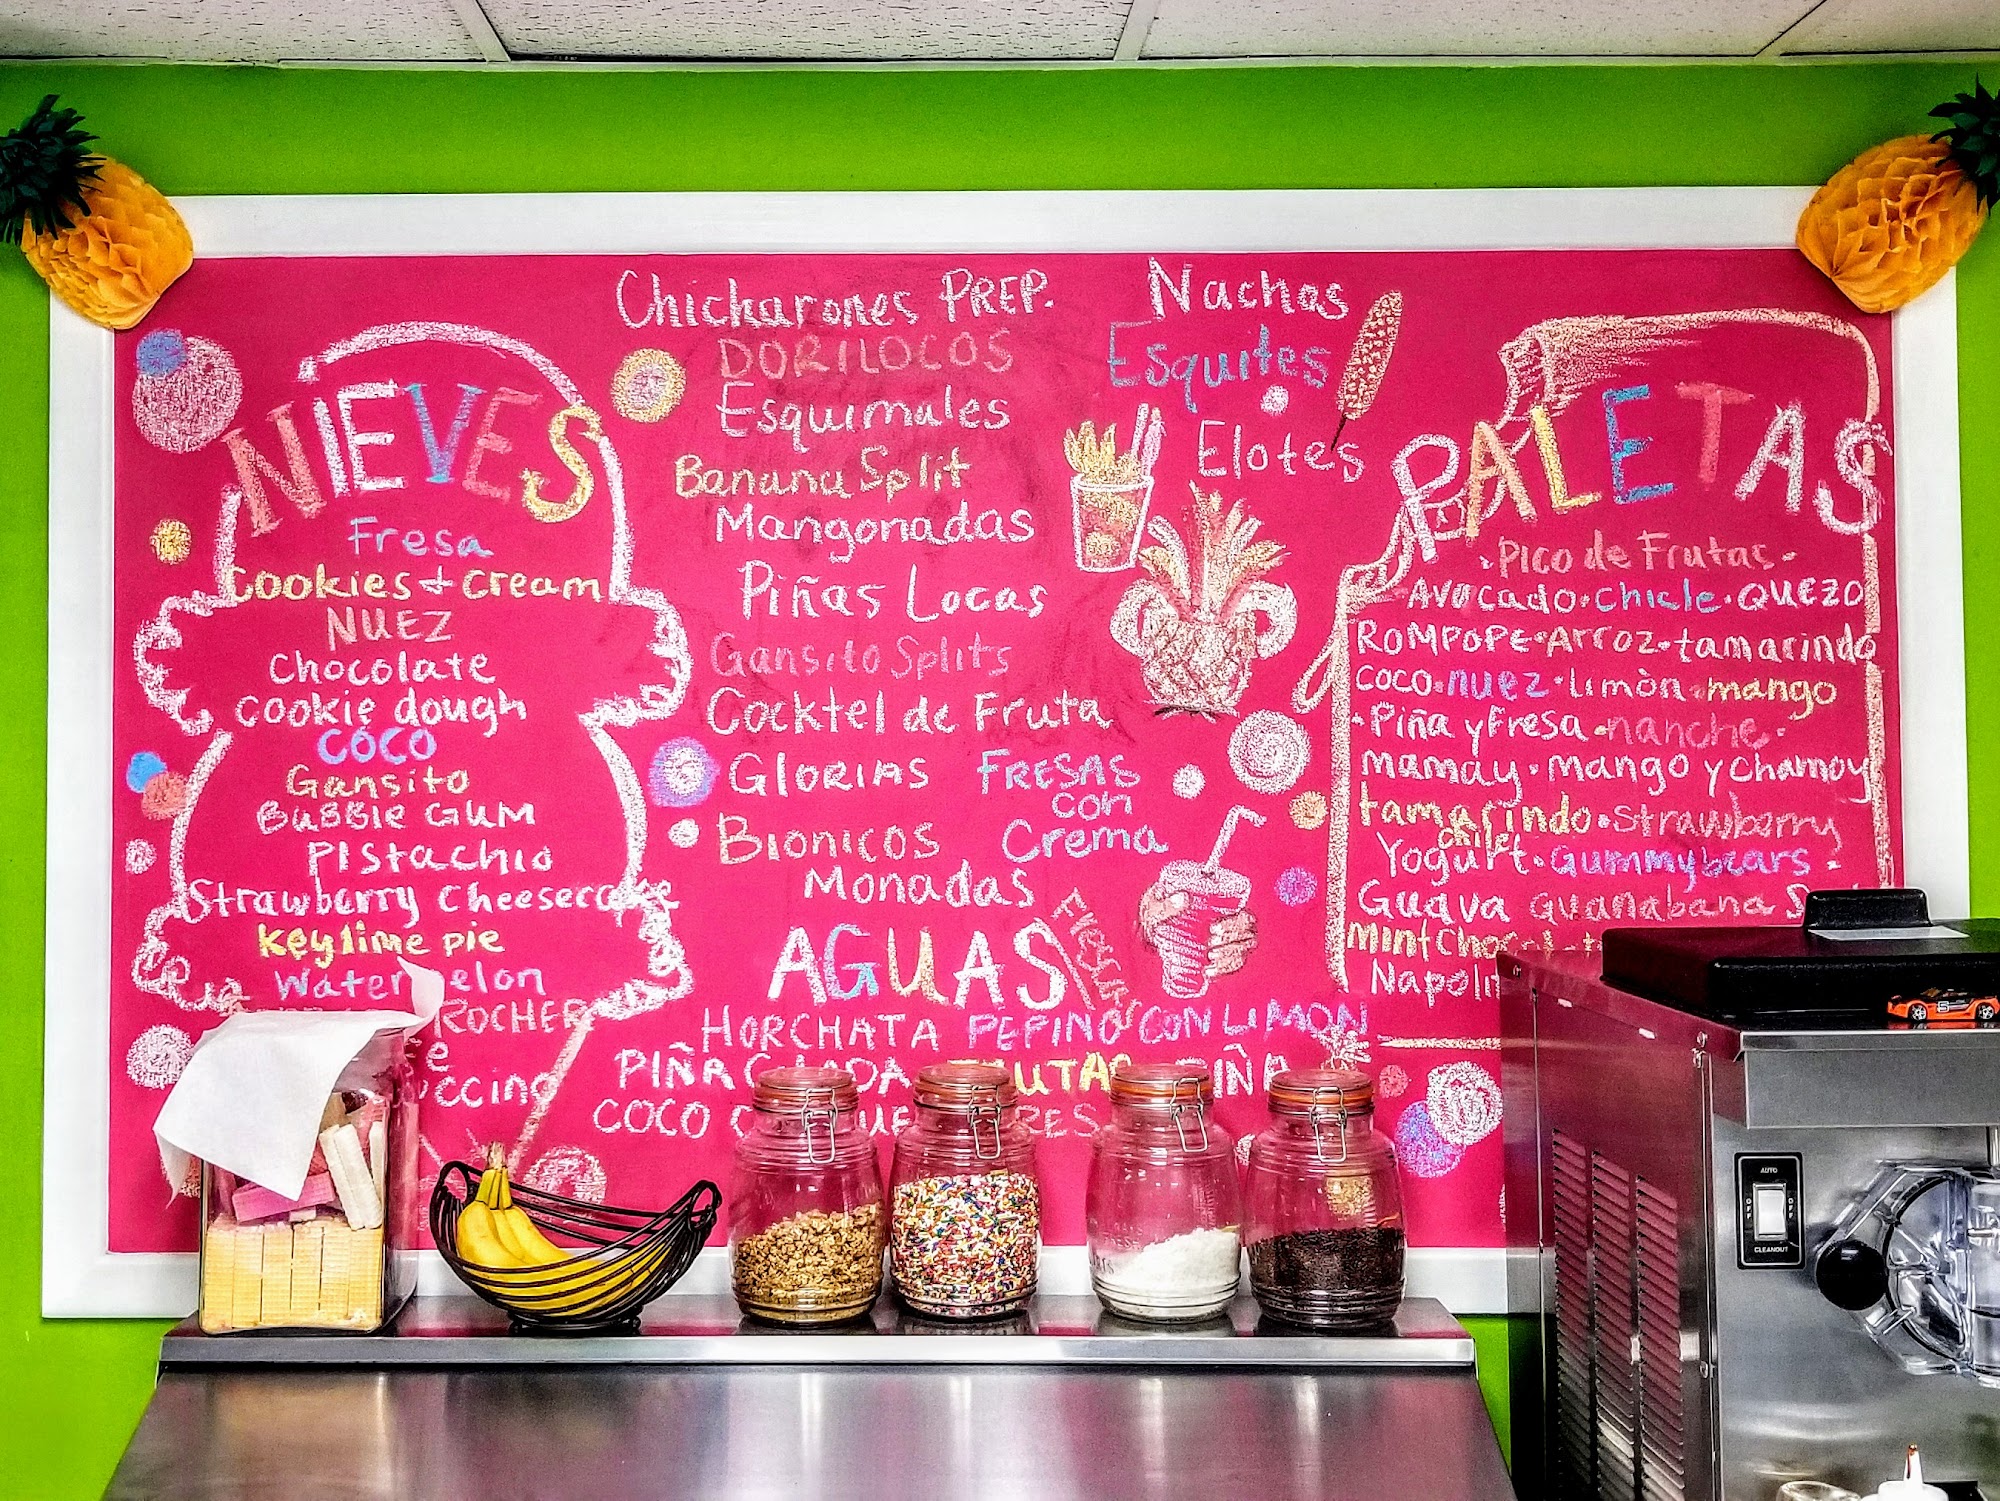 NIEVES
Fresa
Cookies + Cream
NUEZ
Chocolate
Cookie dough
COCO
Gansito
BUBBLE GUM
PIStachio
Strawberry Cheesecake
Key lime pie
Watermelon
ROCHER
Chicharones PREP.
DORILOCOS
Esquimales
Banana Split
Mangonadas
Piñas Locas
Gansito Splits
Cocktel de Fruta
GLORIAS
BIONICOS
MONADAS
FRESAS
CON
Crema
Nachos
Esquites
Elotes
AGUAS
FRESCAS
HORCHATA PEPINO CON LIMON
PIÑA PIÑA
COCO
PALETAS
• PICO de Frutas •
AVOCADO • chicle • QUEZO
ROMPOPE • Arroz • tamarindo
COCO • nuez • Limòn • mango
• Piña y Fresa • nanche •
mamay • mango y chamoy
tamarindo • Strawberry
chile
Yogurt • Gummybears •
Guava guanabana
mint
AUTO
OFF
OFF
CLEANOUT
5